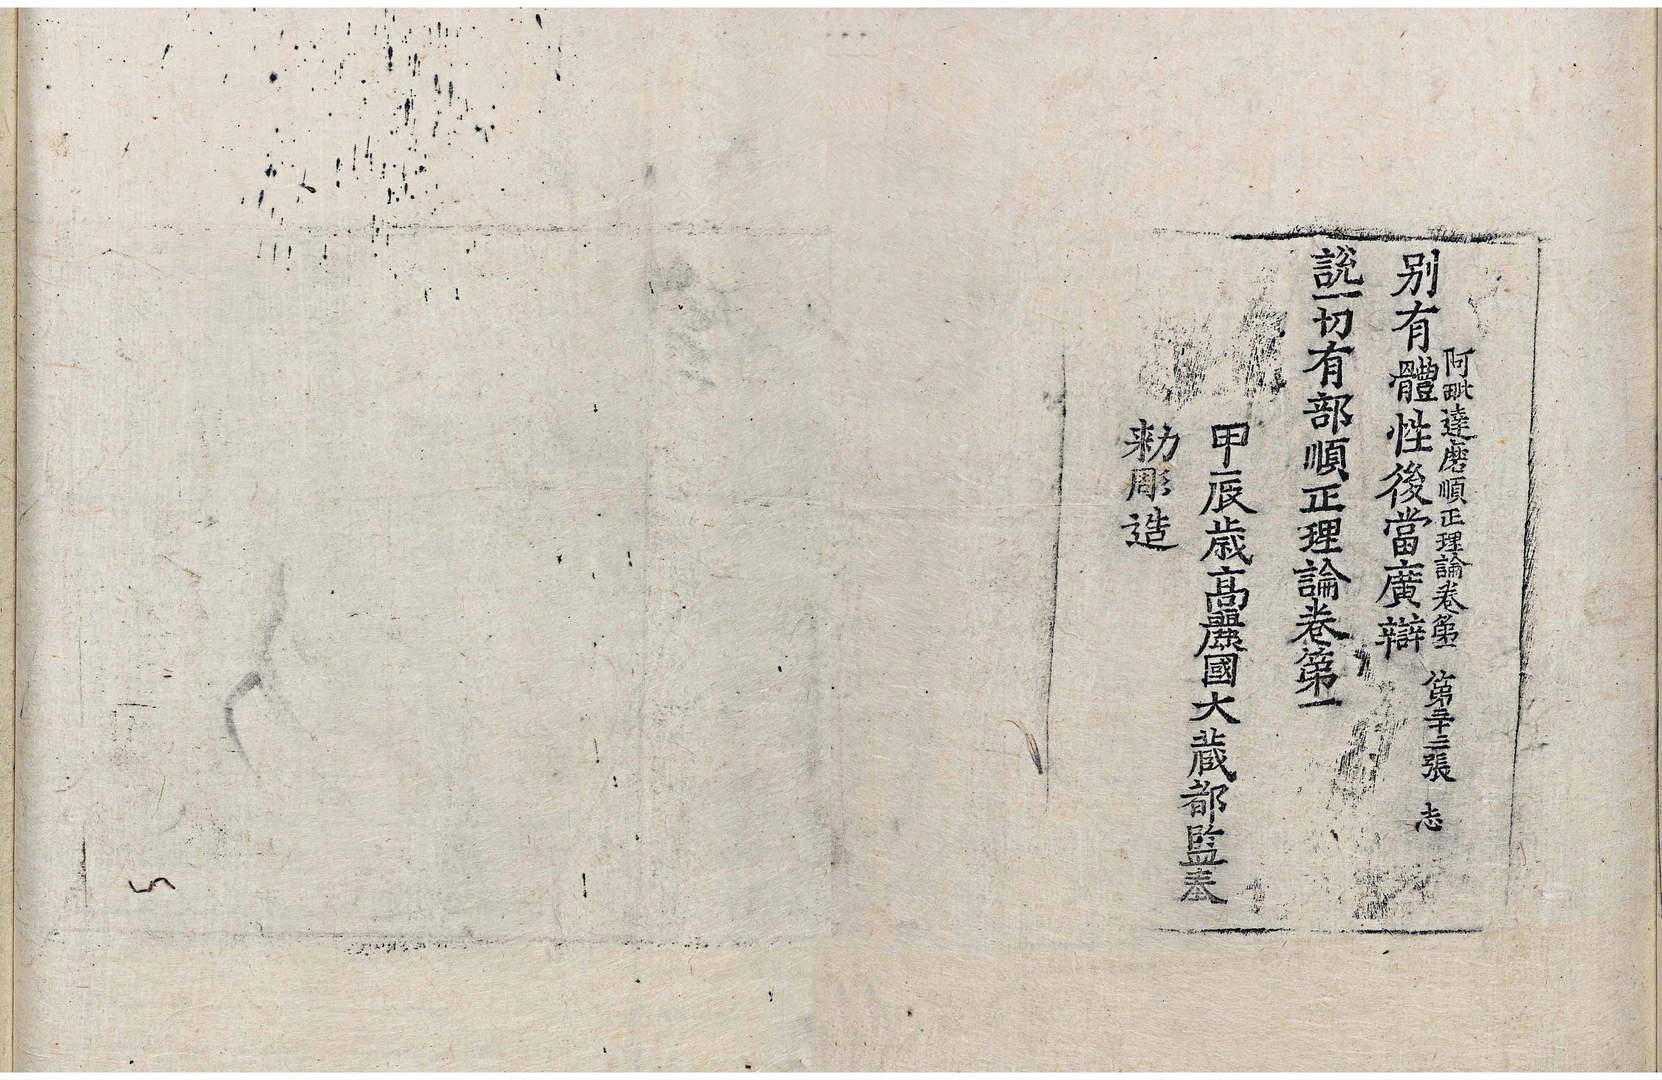 阿毗達磨順正理論卷第一 第三十二張 志
别有體性後當廣辯
說一切有部順正理論卷第一
甲辰歲高麗國大藏都監奉
勅彫造